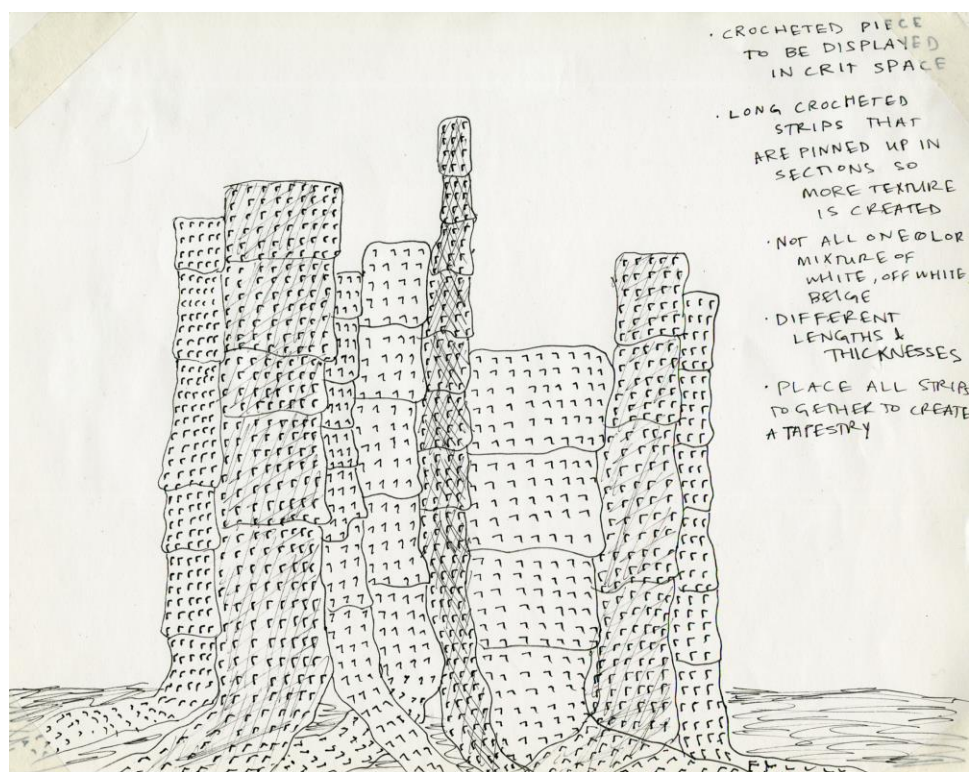 · CROCHETED PIECE
TO BE DISPLAYED
IN CRIT SPACE
· LONG CROCHETED
STRIPS THAT
ARE PINNED UP IN
SECTIONS SO
MORE TEXTURE
IS CREATED
· NOT ALL ONE COLOR
MIXTURE OF
WHITE, OFF WHITE
BEIGE
· DIFFERENT
LENGTHS &
THICKNESSES
· PLACE ALL STRIPS
TOGETHER TO CREATE
A TAPESTRY